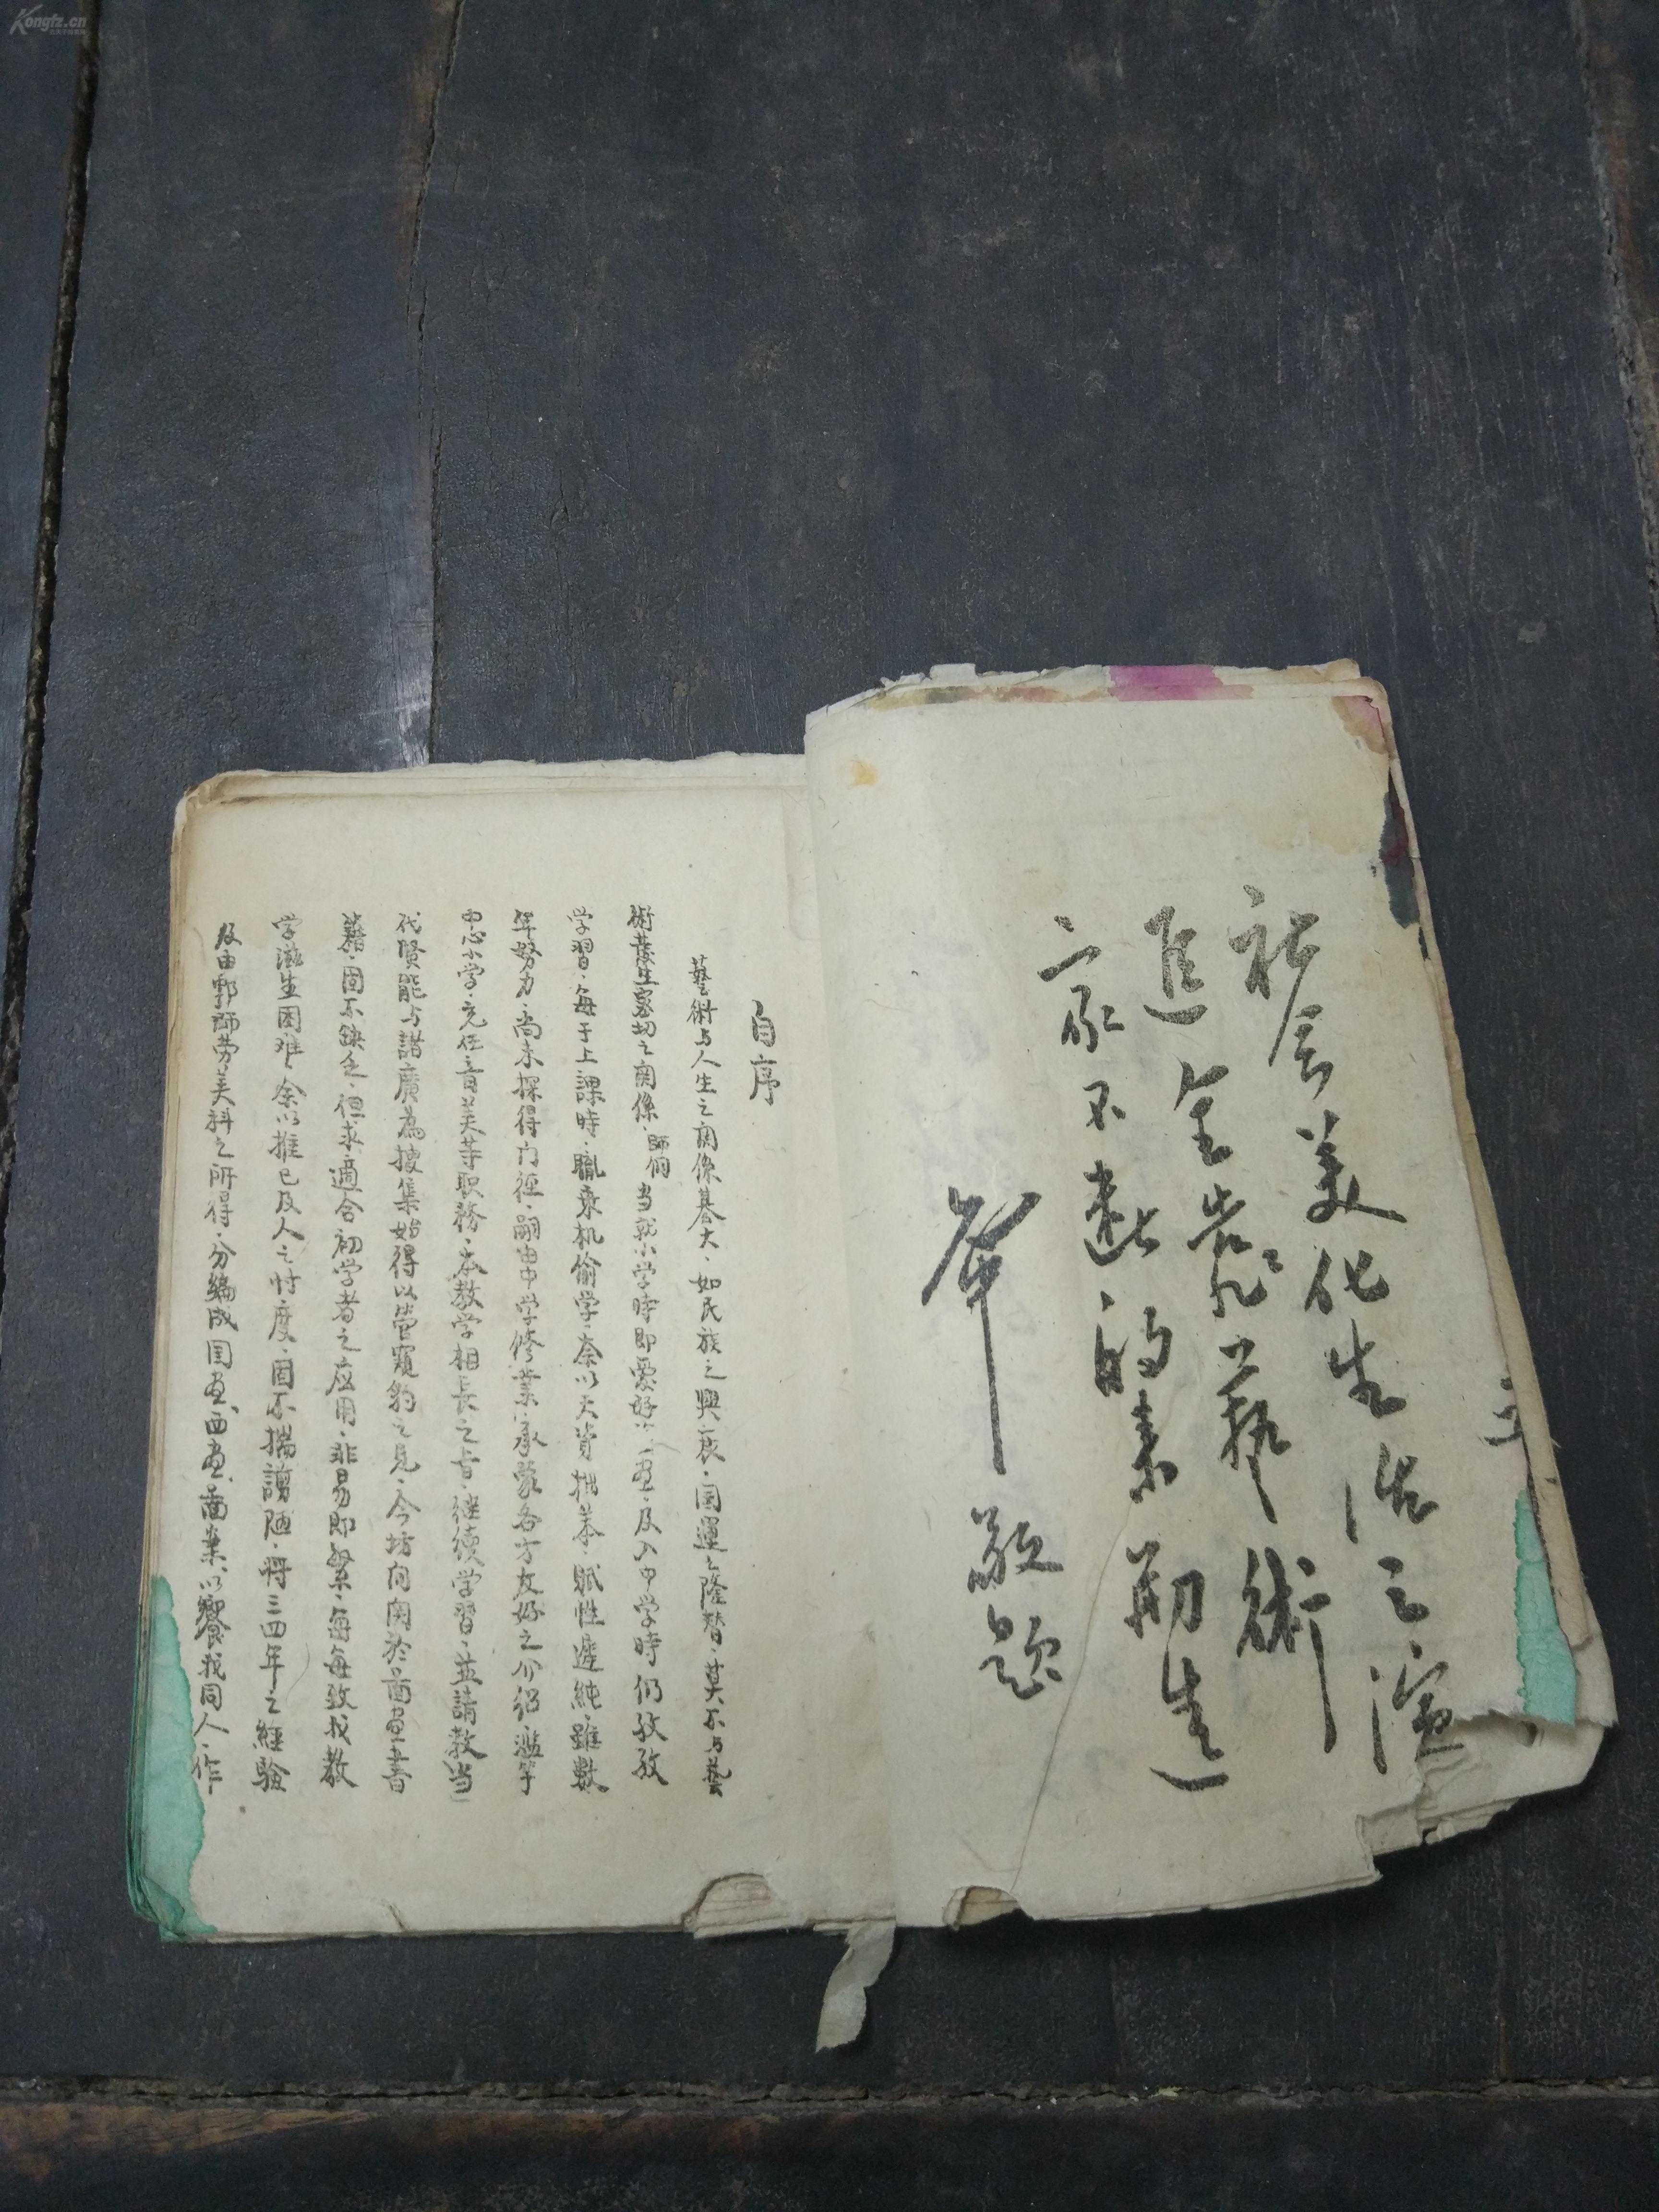 Kongfz.cn
社会美化生活之演
進全靠藝術
家不斷的素刱造
敬題
自序
藝術与人生之関係甚大、如民族之興衰、国運之隆替、莫不与藝
術發生密切之関係、师侗当就小学時即爱好畫、及入中学時仍孜孜
学習、每于上課時、輒乘机偷学、奈以天資拙苯、賦性遲純、雖數
年努力、尚未探得门徑、嗣由中学修業、承蒙各方友好之介绍、濫竽
中心小学、充任音美等职務、本教学相長之旨、继续学習、並請教当
代賢能与諸廣為搜集始得以管窺豹之見、今坊间関於畵画書
籍、固不缺乏、但求適合初学者之应用、非易即繁、每每致我教
学滋生困难、余以推已及人之忖度、固不揣謭陋、将三四年之經驗
及由郭師劳美科之所得、分編成国画、西画、畵案、以饗我同人、作